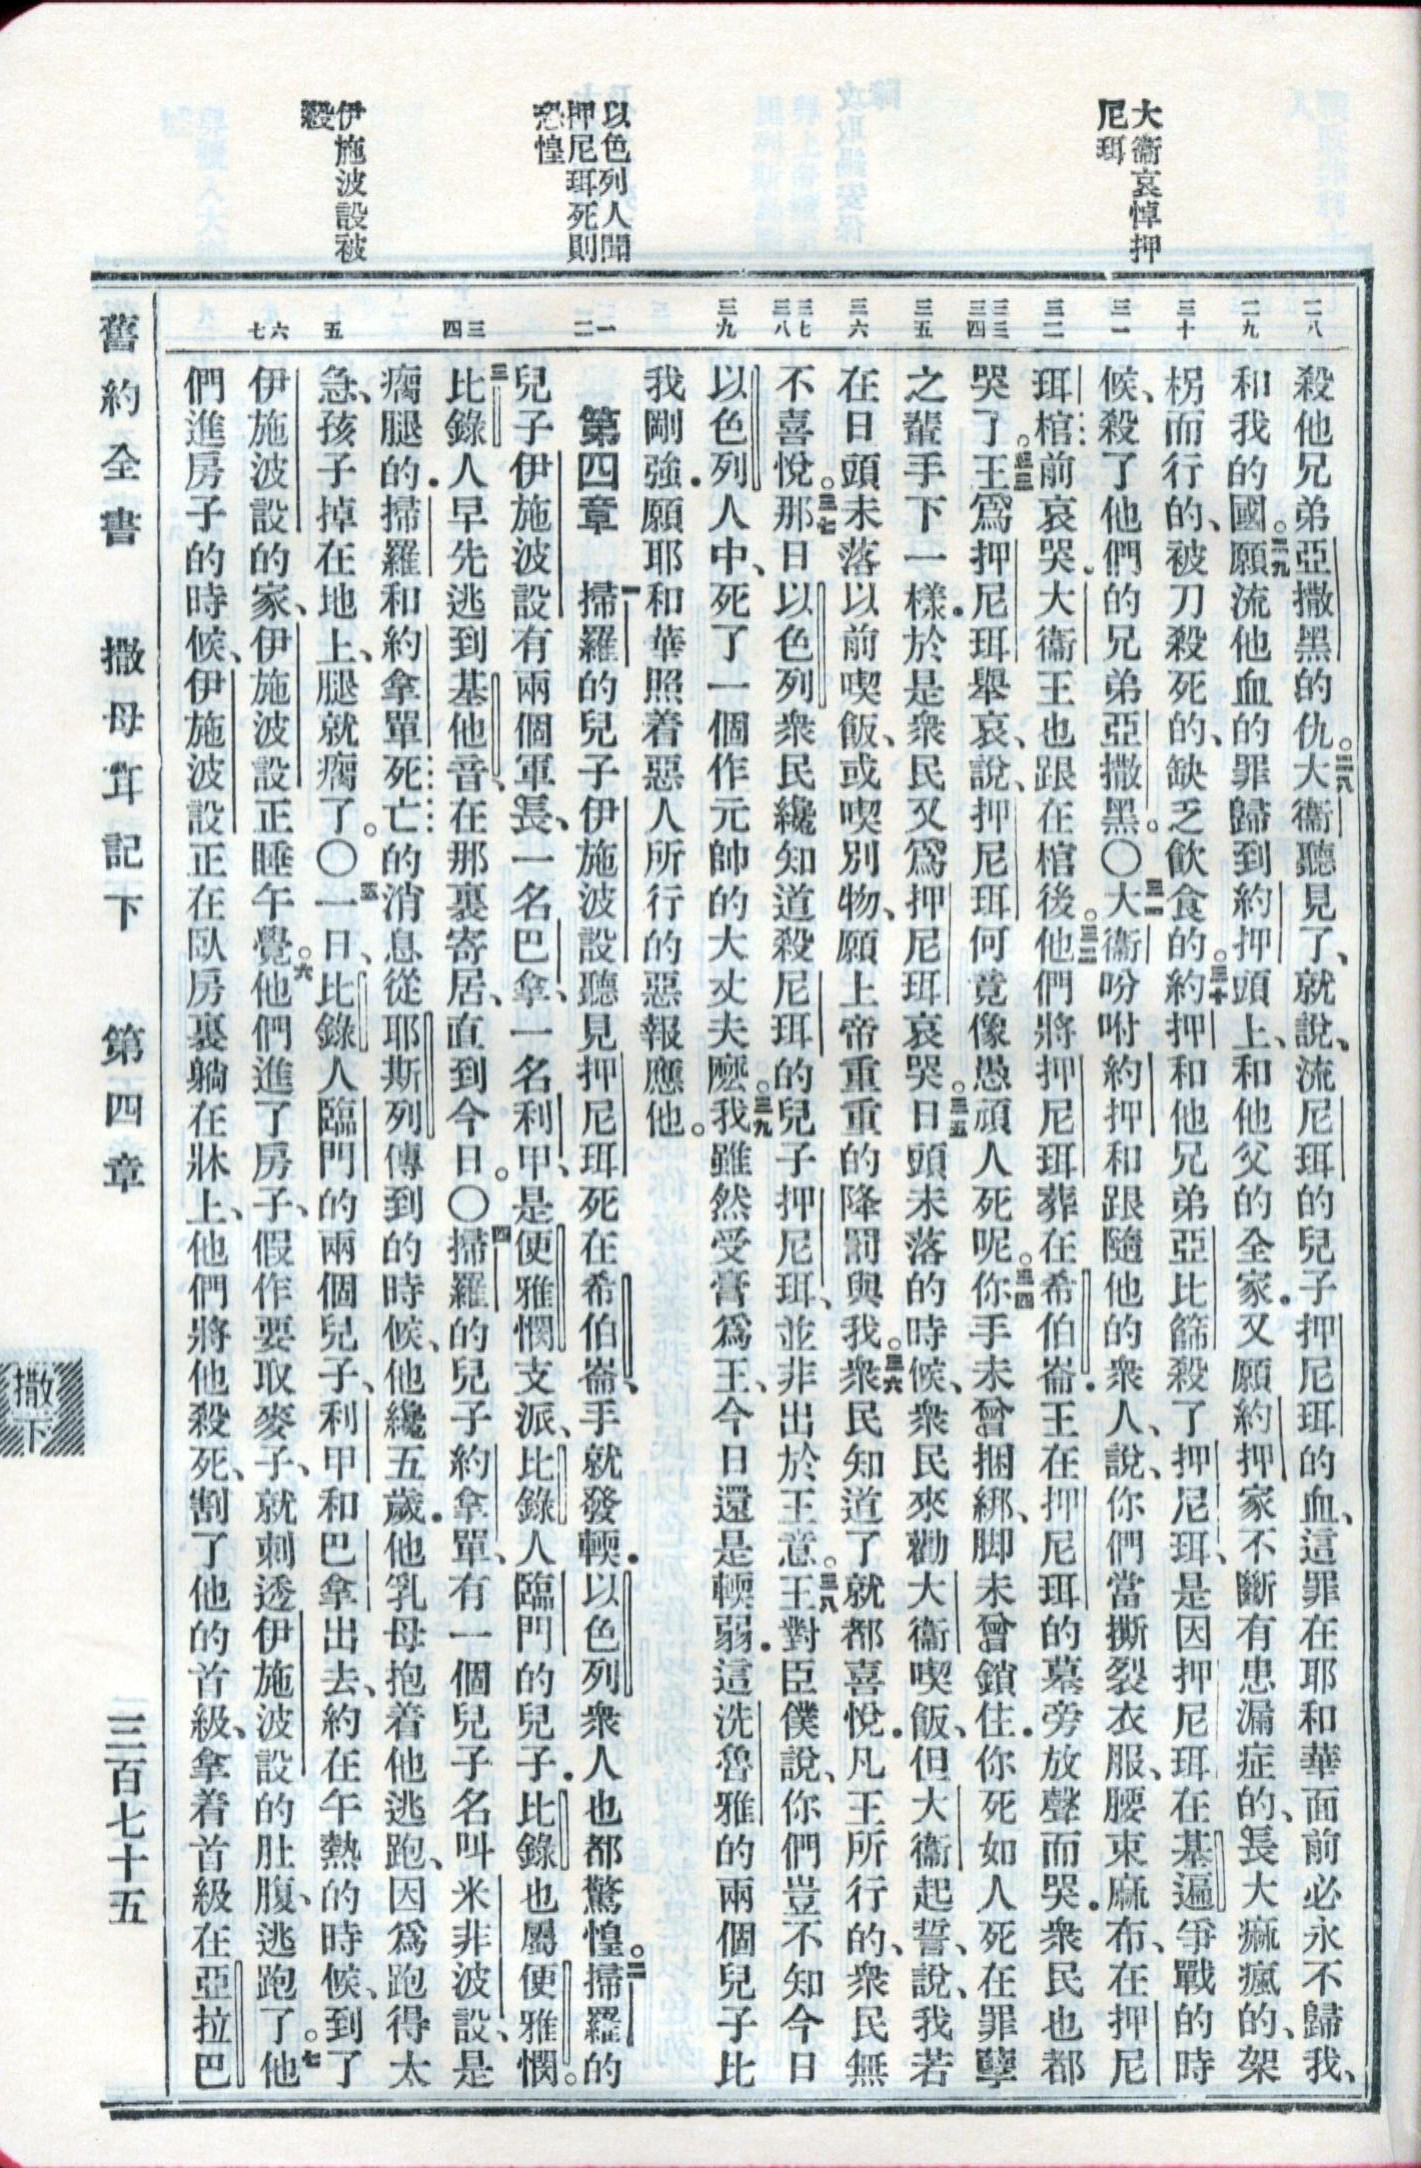 大衞哀悼押
尼珥
以色列人聞
押尼珥死則
恐惶
伊施波設被
殺
二八
二九
三十
三一
三二
三三
三四
三五
三六
三七
三八
三九
一
二
三
四
五
六
七
殺他兄弟亞撒黑的仇。二八大衞聽見了、就說、流尼珥的兒子押尼珥的血、這罪在耶和華面前必永不歸我、
和我的國。二九願流他血的罪歸到約押頭上、和他父的全家．又願約押家不斷有患漏症的、長大痲瘋的、架
柺而行的、被刀殺死的、缺乏飲食的。三十約押和他兄弟亞比篩殺了押尼珥、是因押尼珥在基遍爭戰的時
候、殺了他們的兄弟亞撒黑。〇三一大衞吩咐約押和跟隨他的衆人、說、你們當撕裂衣服、腰束麻布、在押尼
珥棺前哀哭．大衞王也跟在棺後。三二他們將押尼珥葬在希伯崙．王在押尼珥的墓旁放聲而哭．衆民也都
哭了。三三王爲押尼珥舉哀、說、押尼珥何竟像愚頑人死呢。三四你手未曾捆綁、脚未曾鎖住．你死如人死在罪孽
之輩手下一樣．於是衆民又爲押尼珥哀哭。三五日頭未落的時候、衆民來勸大衞喫飯、但大衞起誓、說、我若
在日頭未落以前喫飯、或喫別物、願上帝重重的降罰與我。三六衆民知道了就都喜悅．凡王所行的、衆民無
不喜悅。三七那日以色列衆民纔知道殺尼珥的兒子押尼珥、並非出於王意。三八王對臣僕說、你們豈不知今日
以色列人中、死了一個作元帥的大丈夫麽。三九我雖然受膏爲王、今日還是輭弱．這洗魯雅的兩個兒子比
我剛強．願耶和華照着惡人所行的惡報應他。
第四章　一掃羅的兒子伊施波設聽見押尼珥死在希伯崙、手就發輭．以色列衆人也都驚惶。二掃羅的
兒子伊施波設有兩個軍長、一名巴拿、一名利甲、是便雅憫支派、比錄人臨門的兒子．比錄也屬便雅憫。
三比錄人早先逃到基他音、在那裏寄居、直到今日。〇四掃羅的兒子約拿單、有一個兒子名叫米非波設、是
瘸腿的．掃羅和約拿單死亡的消息從耶斯列傳到的時候、他纔五歲．他乳母抱着他逃跑、因爲跑得太
急、孩子掉在地上、腿就瘸了。〇五一日、比錄人臨門的兩個兒子、利甲和巴拿出去、約在午熱的時候、到了
伊施波設的家、伊施波設正睡午覺。六他們進了房子、假作要取麥子、就刺透伊施波設的肚腹、逃跑了。七他
們進房子的時候、伊施波設正在臥房裏躺在牀上、他們將他殺死、割了他的首級、拿着首級在亞拉巴
舊約全書　撒母耳記下　第四章　三百七十五
撒下